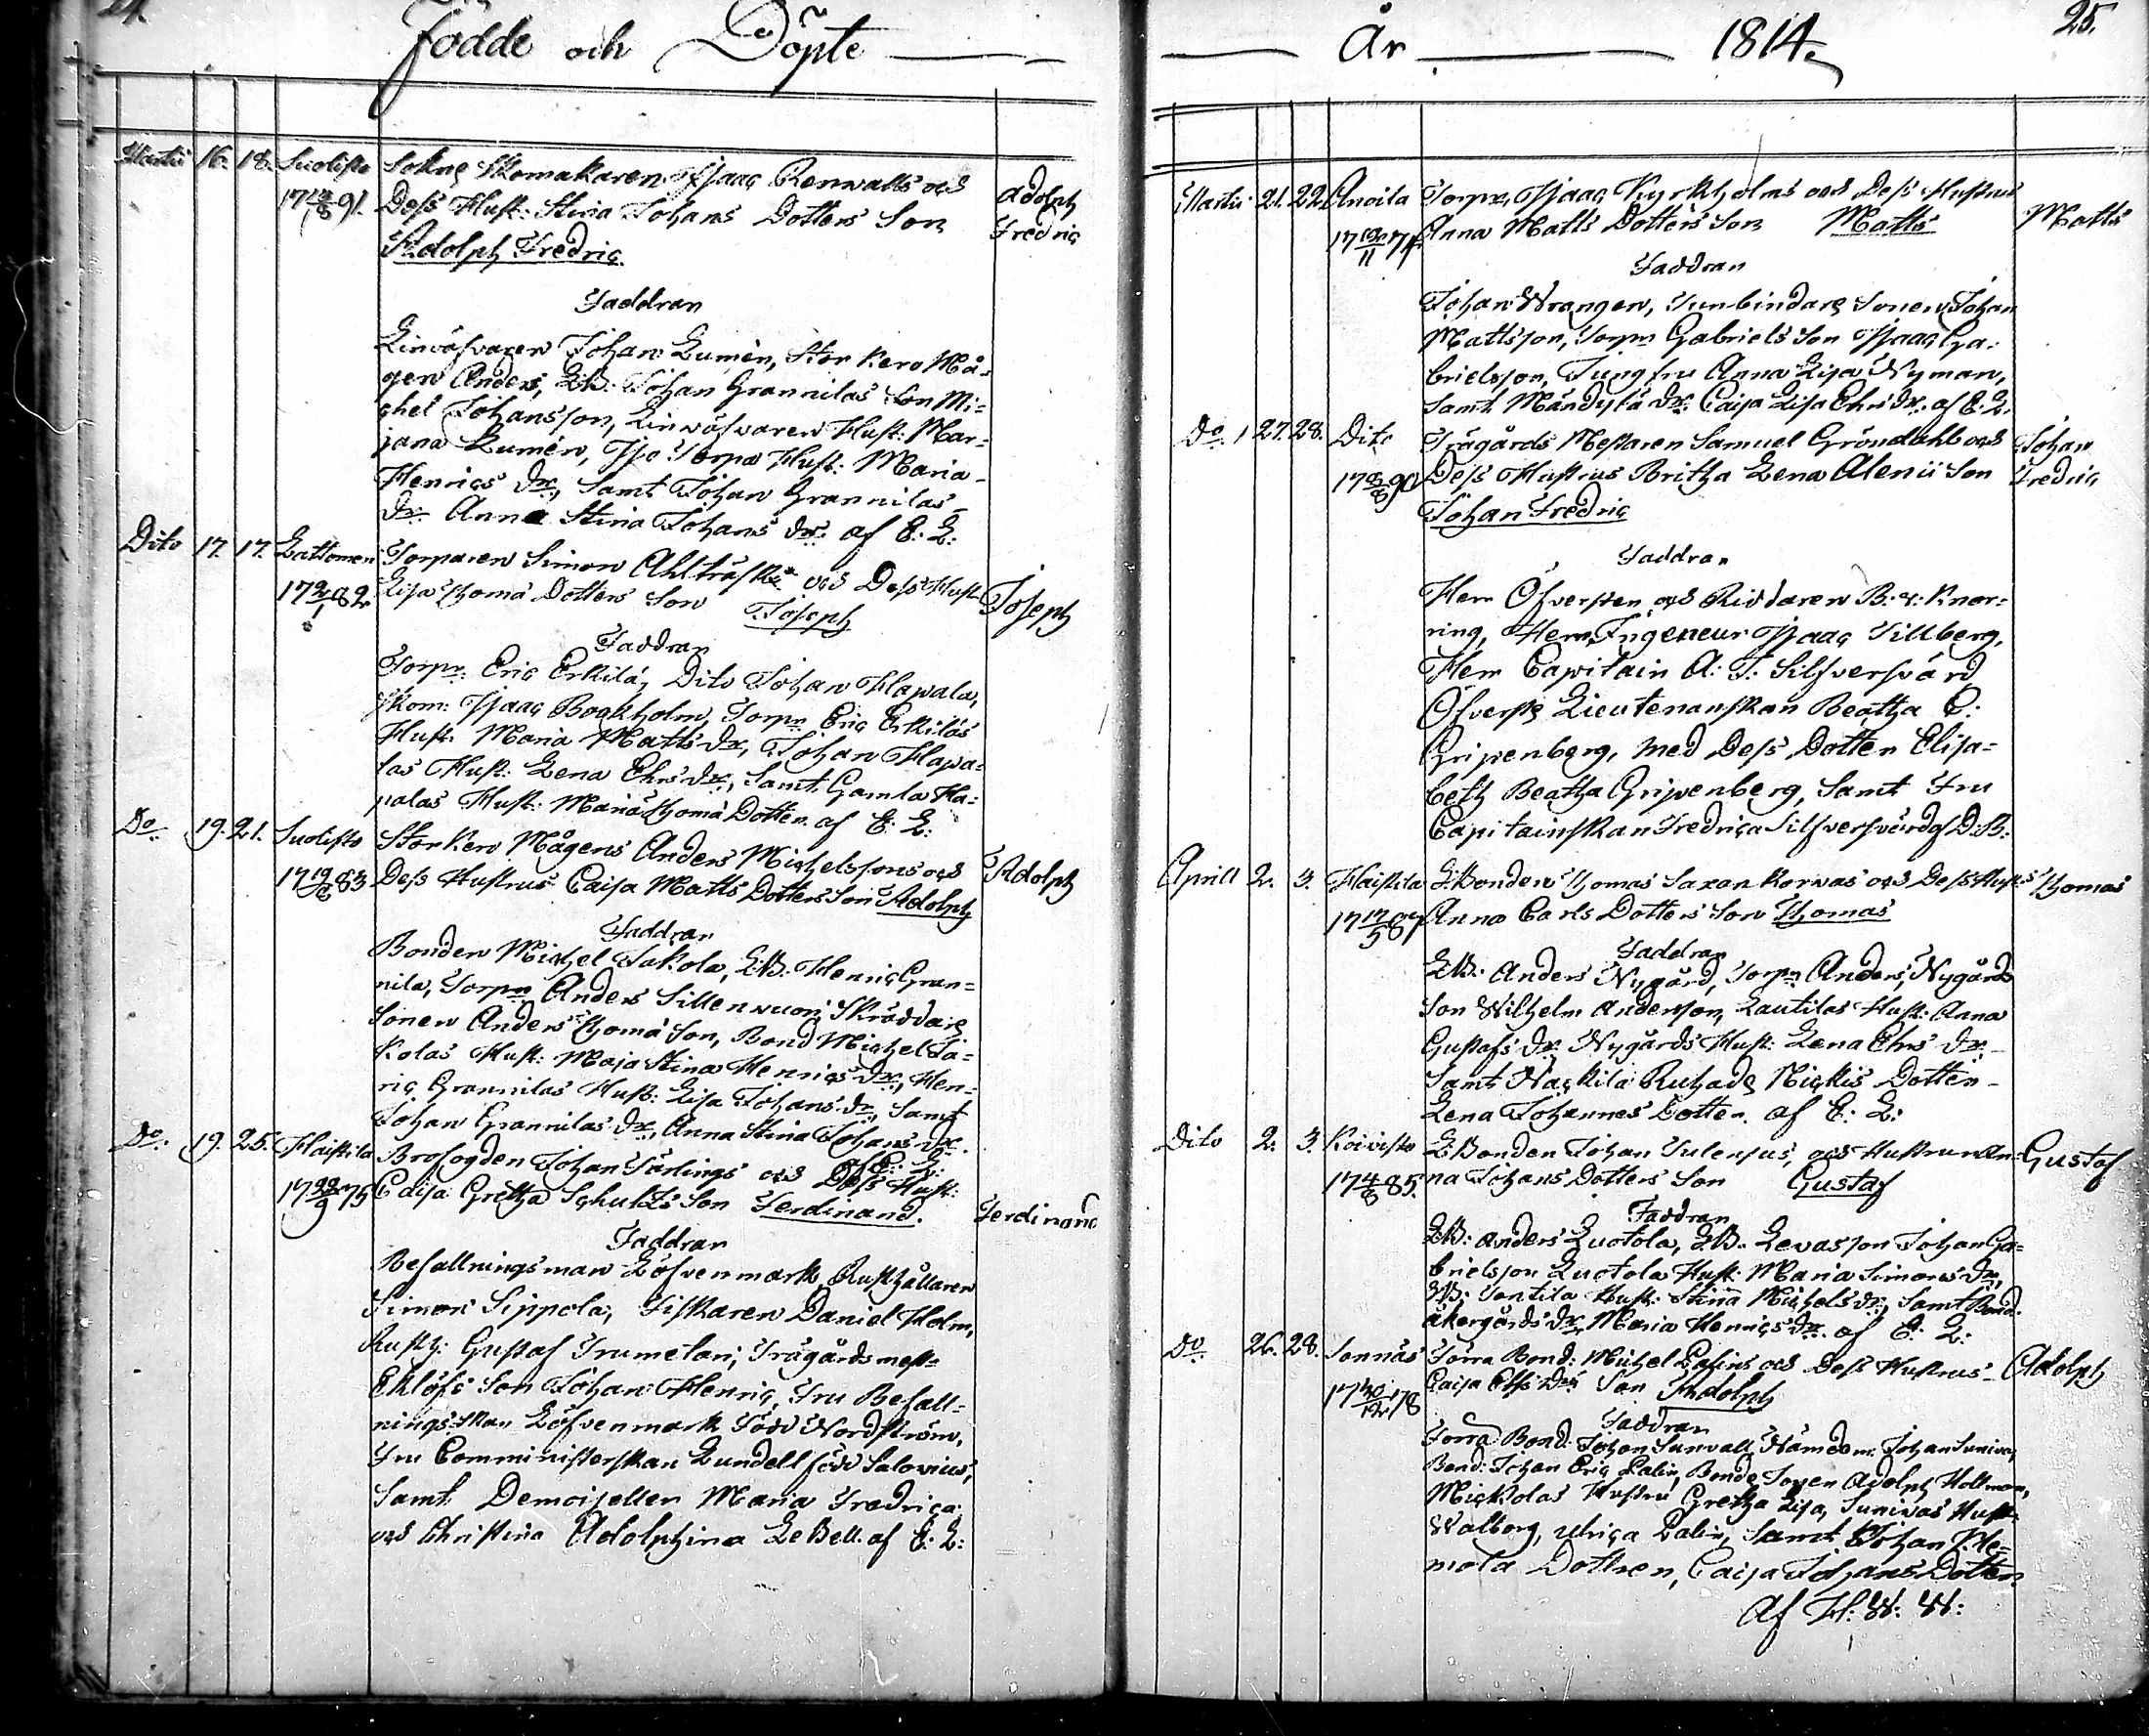 24.
Födde och Döpte
Martii 16. 18. Suolisto Sokne Skomakaren Isaac Renwalls och
Dess Hust: Stina Johans Dotters Son Adolph
Adolph Fredric Fredric
Faddrar
Linväfvaren Johan Lumén, Storkero Må-
gen Anders, LB: Johan Grannilas Son Mi-
chel Johansson, Linväfvaren Hust: Mar-
jana Lumén, Torpr Hust: Maria
Henrics Dr, Samt Johan Grannilas
Dr Anna Stina Johans Dr af E: L:
Dito 17. 17. Lattomeri Torparen Simon Ahlträsk och Dess Hust
17 2/1 82 Lisa Thomæ Dotters Son Joseph Joseph
Faddrar
Torpr Eric Erkilä, Dito Johan Hapala,
Skom: Isaac Bockholm, Torpr Eric Erkiläs
Hust: Maria Matts Dr, Johan Hapa-
las Hust: Lena Ehrs Dr, Samt Gamla Ha-
palas Hust: Maria Thomæ Dotter af E: L:
Do 19. 21. Suolisto Storkero Mågens Anders Michelssons och
83 Dess Hustrus Caisa Matts Dotters Son Adolph Adolph
Faddrar
Bonden Michel Jakola, LB: Henric Gran-
nila, Torpr Anders Sillenvuori, Skräddare
Sonen Anders Thomæ Son, Bond Michel Ja-
kolas Hust: Maja Stina Henrics Dr, Hen-
ric Grannilas Hust: Lisa Johans Dr, Samt
Johan Grannilas Dr, Anna Stina Johans Dr
af E: L:
Do 19. 25. Haistila Brofogden Johan Färlings och Dess Hust:
17 22/9 75 Caisa Gretha Schultz Son Ferdinand. Ferdinand
Faddrar
Befallningsman Löfvenmark, Rusthållaren
Simon Sippola, Fiskaren Daniel Holm,
Rusth: Gustaf Trumetari, Trägårdsmest
Eklöfs Son Johan Henric, Fru Befall-
ningskan Löfvenmark Född Nordström,
Fru Comministerskan Lundell född Salovius,
Samt Demoiseller Maria Fredrica
och Christina Adolphina LeBell. af E: L:
År 1814. 25.
Martii 21. 22. Anoila Torpr Isaac Kyrkholms och Dess Hustrus
Anna Matts Dotters Son Matts Matts
Faddrar
Johan Wrangen, Tunbindare Sonen Johan
Mattsson, Torpr Gabriels Son Isaac Ga-
brielsson, Jungfru Anna Lisa Nyman,
Samt Mändylä Dr Caisa Lisa Ehrs Dr af E: L:
Do 27. 28. Dito Trägårds Mestaren Samuel Gröndahls och Johan
Dess Hustrus Britha Lena Alenii Son Fredric
Johan Fredric
Faddrar
Herr Öfversten och Riddaren B: v: Knor-
ring, Herr Ingeneur Isaac Tillberg,
Herr Capitain A: J: Silfversvärd
Öfverste Lieutenanskan Beatha C:
Gripenberg, med Dess Dotter Elisa-
beth Beatha Gripenberg, Samt Fru
Capitainskan Fredrica Silfversvärd af D: B:
Aprill 2. 3. Haistila LBonden Thomas Saxankorwas och Dess Hust: Thomas
Anna Carls Dotters Son Thomas
Faddrar
LB: Anders Nygård, Torpr Anders, Nygårds
Son Wilhelm Andersson, Lautilas Hust: Anna
Gustafs Dr Nygårds Hust: Lena Ehrs Dr
Samt Nackila Dotter
Lena Johannes Dotter af E: L:
Dito 2. 3. Koivisto LBonden Johan Tulensus, och Hustrun An- Gustaf
17 4/8 85. na Johans Dotters Son Gustaf
Faddrar
LB: Anders Luotola, LB: Levas Son Johan Ga-
brielsson Luotola Hust: Maria Simons Dr,
LB: Sontila Hust: Stina Michels Dr, Samt Bond:
åkergårds Dr Maria Henrics Dr af E: L:
Do 26. 28. Sonnäs Förra Bond: Michel Palins och Dess Hustrus Adolph
17 30/12 78 Caisa Dr Son Adolph
Faddrar
Förra Bond: Johan Sunvall, Nämdem: Johan Suniva,
Bond: Johan Eric Palin, Bonde Sonen Adolph Hollman,
Mickolas Hustru Gretha Lisa, Sunivas Hust:
Walborg, Ulrica Palin, Samt Johan Kle-
mola Dottren, Caisa Johans Dotter
Af H: W: W: